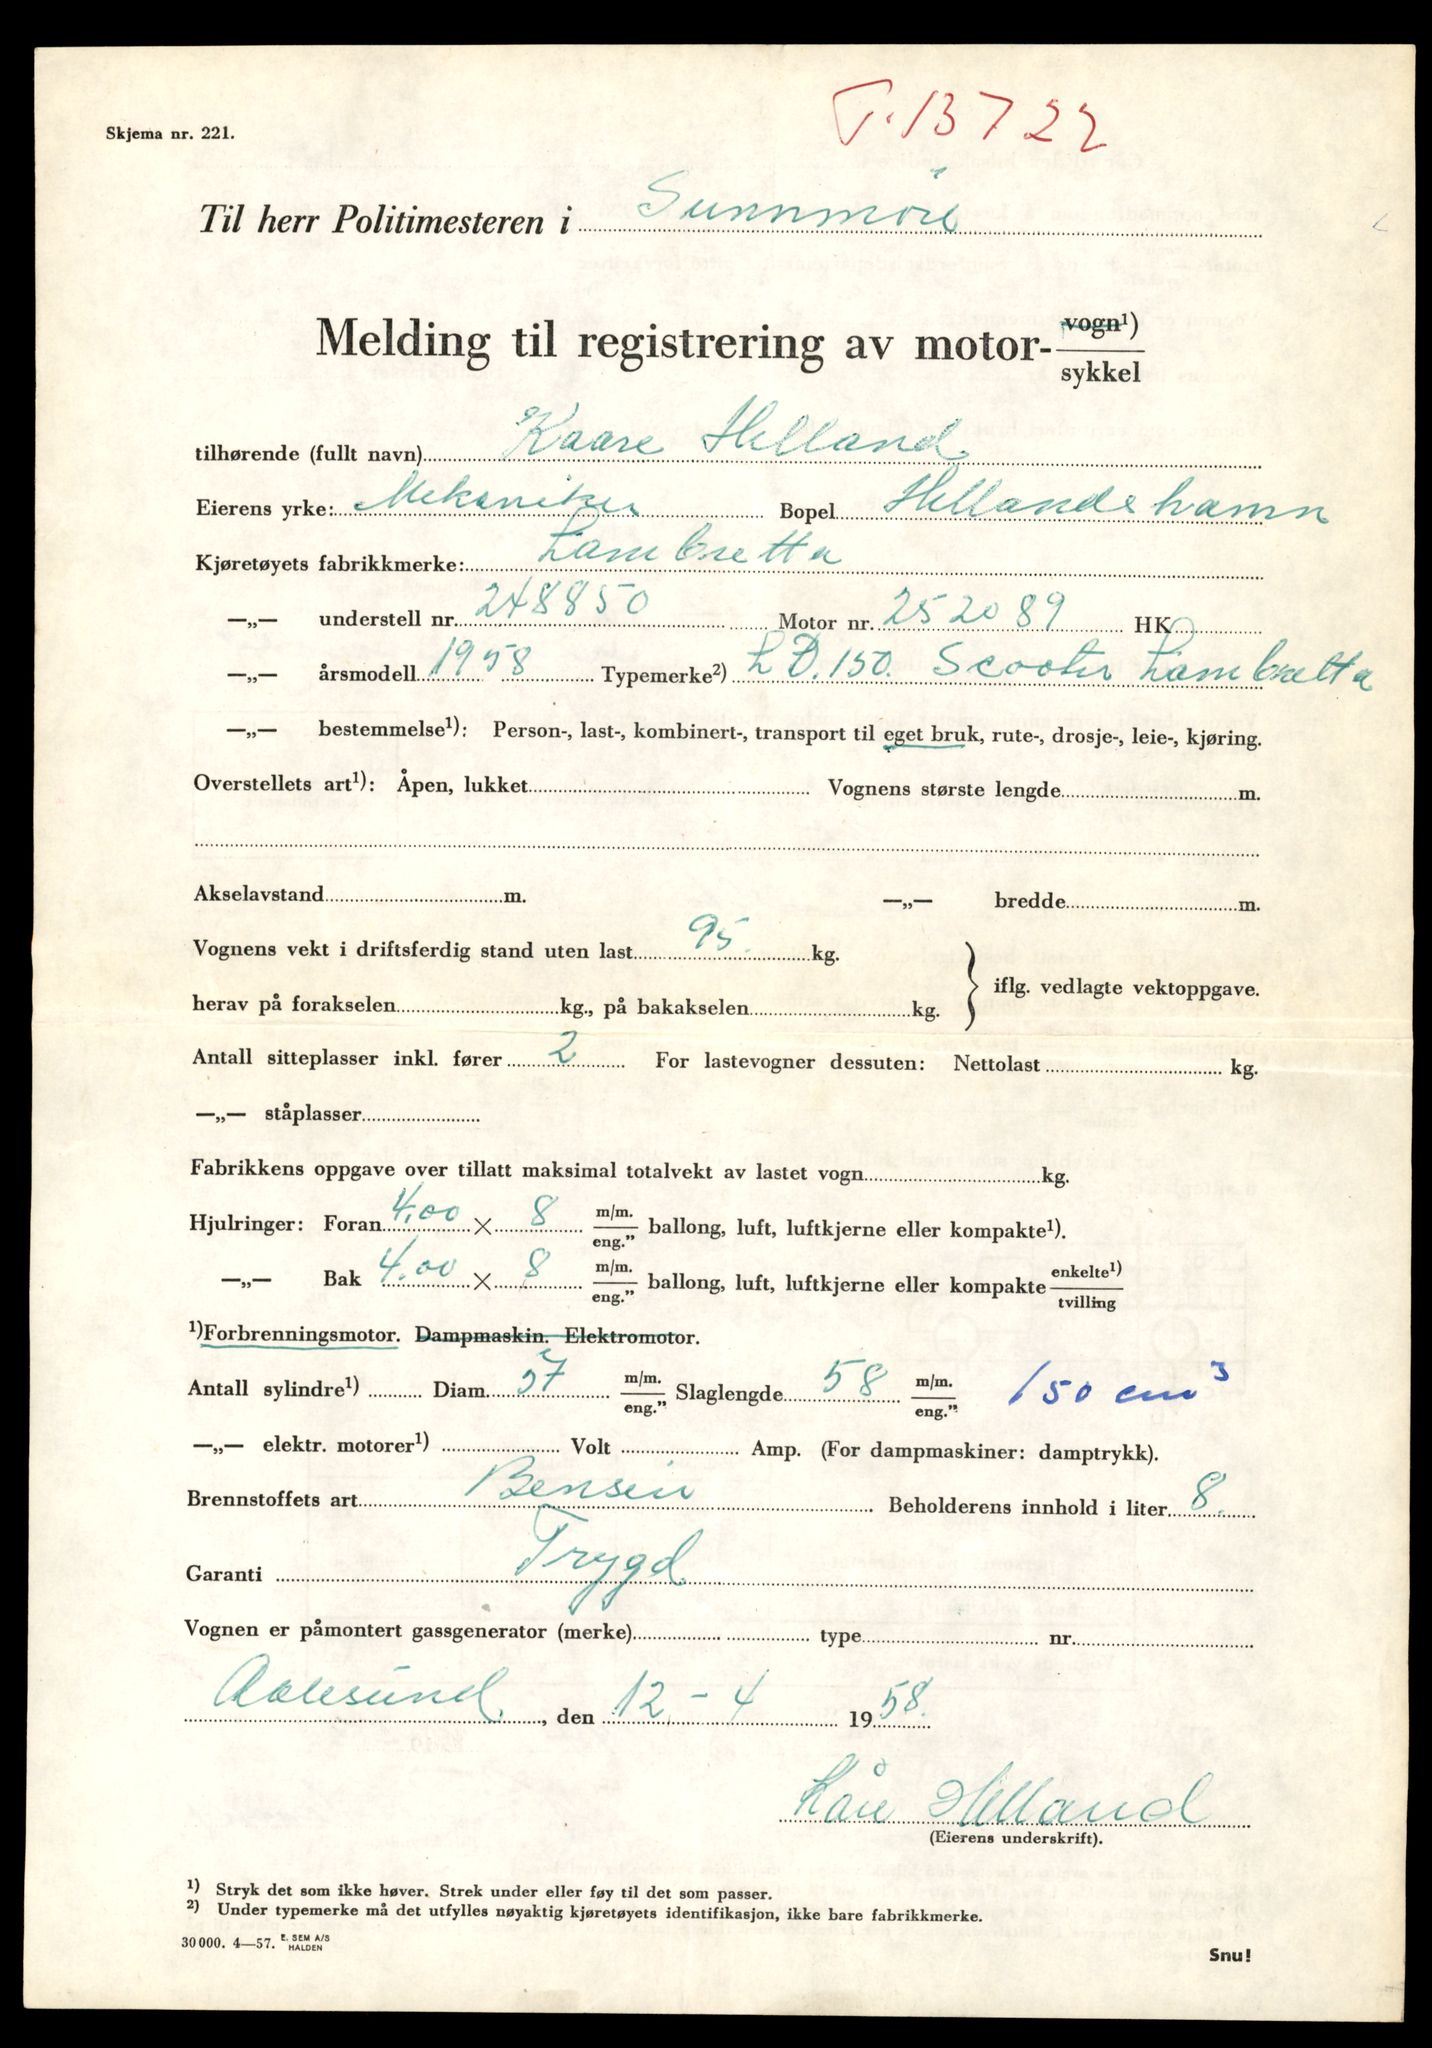 T. 13722
Skjema nr. 221.
Til herr Politimesteren i Sunnmöre
Melding til registrering av motor- vogn¹) sykkel
tilhørende (fullt navn) Kaare Helland
Eierens yrke: Mekaniker Bopel Hellandshamn
Kjøretøyets fabrikkmerke: Lambretta
—„— understell nr. 248850 Motor nr. 252089 HK
—„— årsmodell 1958 Typemerke²) LD.150. Scooter Lambretta
—„— bestemmelse¹): Person-, last-, kombinert-, transport til eget bruk, rute-, drosje-, leie-, kjøring.
Overstellets art¹): Åpen, lukket Vognens største lengde m.
Akselavstand m. —„— bredde m.
Vognens vekt i driftsferdig stand uten last 95. kg.
herav på forakselen kg., på bakakselen kg. } iflg. vedlagte vektoppgave.
Antall sitteplasser inkl. fører 2 For lastevogner dessuten: Nettolast kg.
—„— ståplasser
Fabrikkens oppgave over tillatt maksimal totalvekt av lastet vogn kg.
Hjulringer: Foran 4.00 × 8 m/m. eng.” ballong, luft, luftkjerne eller kompakte¹).
—„— Bak 4.00 × 8 m/m. eng.” ballong, luft, luftkjerne eller kompakte enkelte¹) tvilling
¹)Forbrenningsmotor. Dampmaskin. Elektromotor.
Antall sylindre¹) Diam. 57 m/m. eng.” Slaglengde 58 m/m. eng.” 150 cm³
—„— elektr. motorer¹) Volt Amp. (For dampmaskiner: damptrykk).
Brennstoffets art Bensin Beholderens innhold i liter 8.
Garanti Trygd
Vognen er påmontert gassgenerator (merke) type nr.
Aalesund, den 12 - 4 1958.
Kåre Helland
(Eierens underskrift).
¹) Stryk det som ikke høver. Strek under eller føy til det som passer.
²) Under typemerke må det utfylles nøyaktig kjøretøyets identifikasjon, ikke bare fabrikkmerke.
30 000. 4—57. E. SEM A/S HALDEN
Snu!